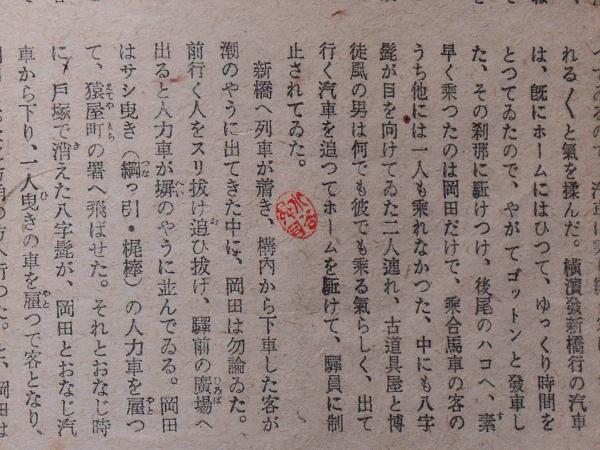 つてゐるので、
れる〱と氣を揉んだ。横濱發新橋行の汽車
は、既にホームにはひつて、ゆっくり時間を
とつてゐたので、やがてゴットンと發車し
た、その刹那に駈けつけ、後尾のハコへ、素
早く乘つたのは岡田だけで、乘合馬車の客の
うち他には一人も乘れなかつた、中にも八字
髭が目を向けてゐた二人連れ、古道具屋と博
徒風の男は何でも彼でも乘る氣らしく、出て
行く汽車を追つてホームを駈けて、驛員に制
止されてゐた。
新橋へ列車が着き、構内から下車した客が
潮のやうに出てきた中に、岡田は勿論ゐた。
前行く人をスリ拔け追ひ拔け、驛前の廣場へ
出ると人力車が塀のやうに並んでゐる。岡田
はサシ曳き（綱っ引・梶棒）の人力車を雇つ
て、猿屋町の署へ飛ばせた。それとおなじ時
に、戸塚で消えた八字髭が、岡田とおなじ汽
車から下り、一人曳きの車を雇つて客となり、